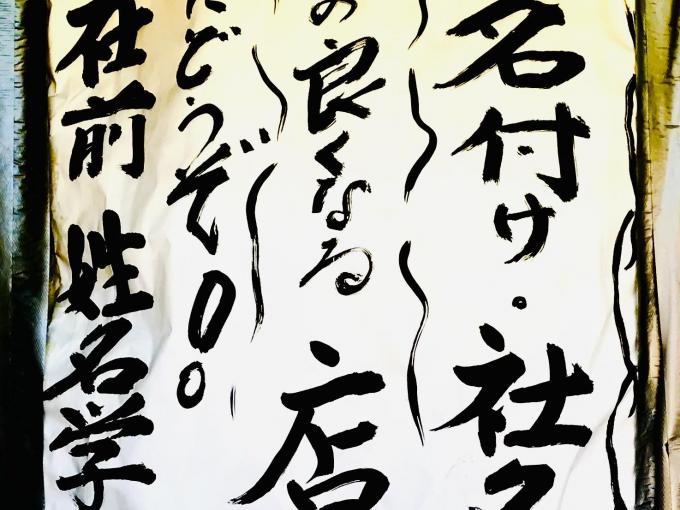 名付け・社名
の良くなる店
にどうぞ！
社前 姓名学